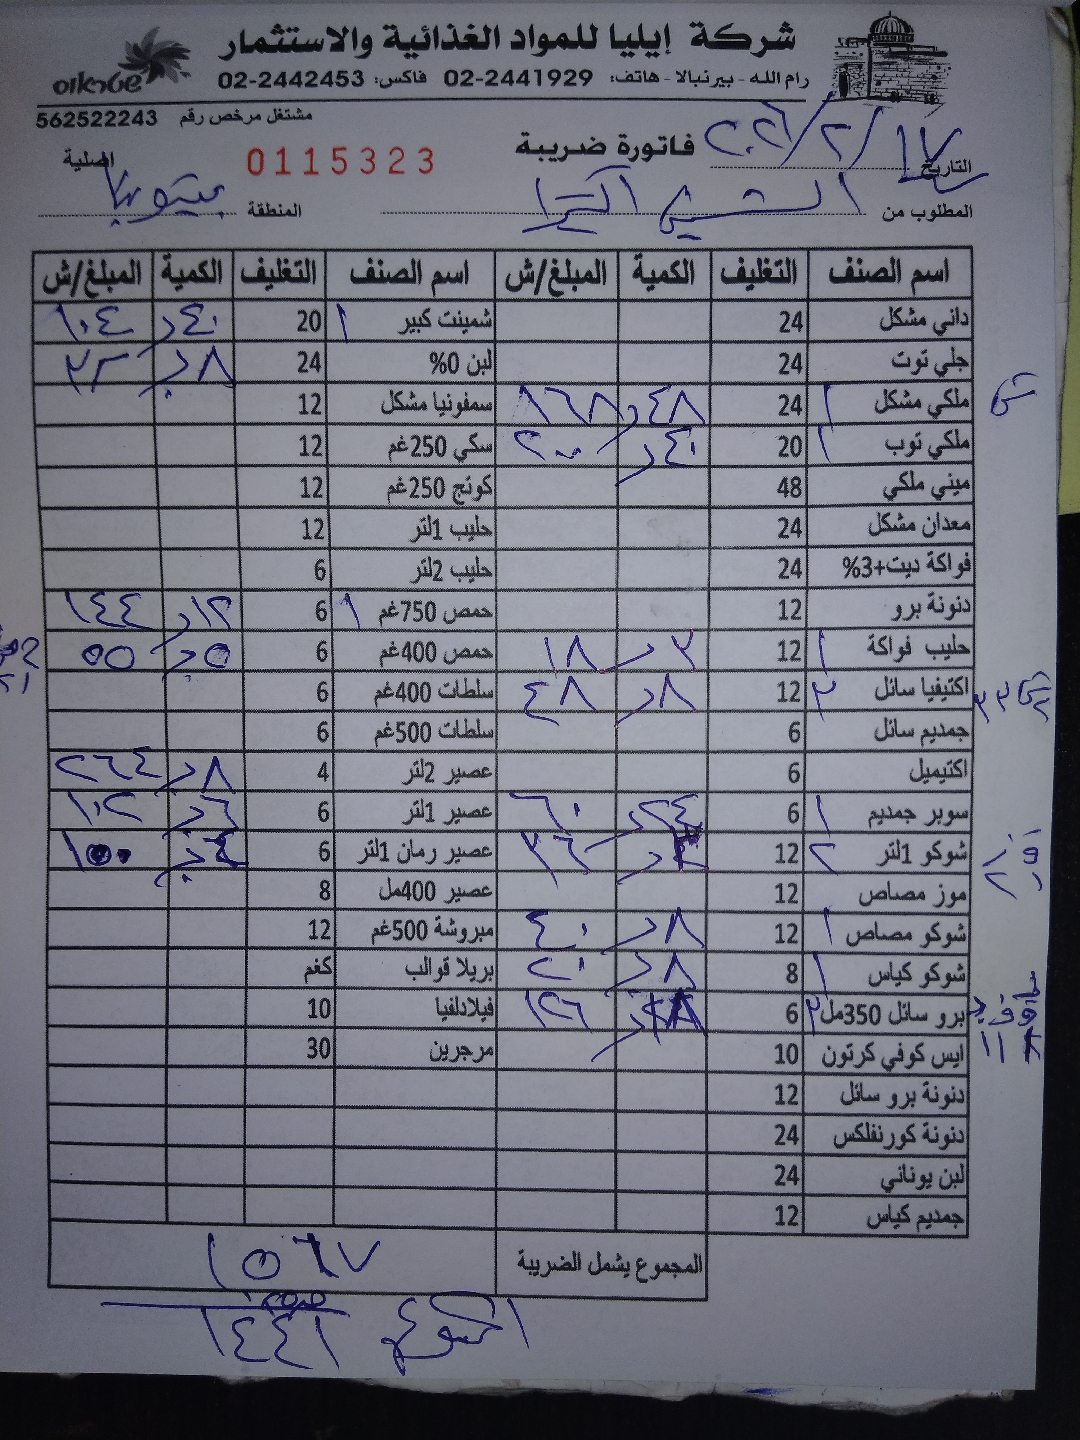 شركة إيليا للمواد الغذائية والاستثمار
رام الله - بيرنبالا - هاتف: 02-2441929 فاكس: 02-2442453
شتراوس
مشتغل مرخص رقم 562522243
فاتورة ضريبة
0115323
التاريخ ١٧/٢/٢٠٢٦
المطلوب من
المنطقة بيتونيا
اسم الصنف التغليف الكمية المبلغ/ش اسم الصنف التغليف الكمية المبلغ/ش
داني مشكل 24 شمينت كبير ١ 20 ٤٠ ١٠٤
جلي توت 24 لبن 0% 24 ٨ ٣٢
ملكي مشكل ١ 24 ٤٨ ٨٦٨ سمفونيا مشكل 12
ملكي توب ١ 20 ٤٠ ٢٠٠ سكي 250غم 12
ميني ملكي 48 كوتج 250غم 12
معدان مشكل 24 حليب 1لتر 12
فواكة ديت+3% 24 حليب 2لتر 6
دنونة برو 12 حمص 750غم ١ 6 ١٢ ١٤٤
حليب فواكة ١ 12 ٣ ١٨ حمص 400غم 6 ٥ ٥٥
اكتيفيا سائل ٢ 12 ٨ ٤٨ سلطات 400غم 6
جمديم سائل 6 سلطات 500غم 6
اكتيميل 6 عصير 2لتر 4 ٨ ٢٦٤
سوبر جمديم ١ 6 ٢٤ ٦٠ عصير 1لتر 6 ٦ ١٠٢
شوكو 1لتر ٢ 12 ٣٦ عصير رمان 1لتر 6 ٤ ١٠٠
موز مصاص 12 عصير 400مل 8
شوكو مصاص ١ 12 ٨ ٤٠ مبروشة 500غم 12
شوكو كياس ١ 8 ٨ ٢٠ بريلا قوالب كغم
برو سائل 350مل ٢ 6 ١٢٦ فيلادلفيا 10
ايس كوفي كرتون 10 مرجرين 30
دنونة برو سائل 12
دنونة كورنفلكس 24
لبن يوناني 24
جمديم كياس 12
المجموع يشمل الضريبة ١٥٦٧
المجموع ١٤٤١